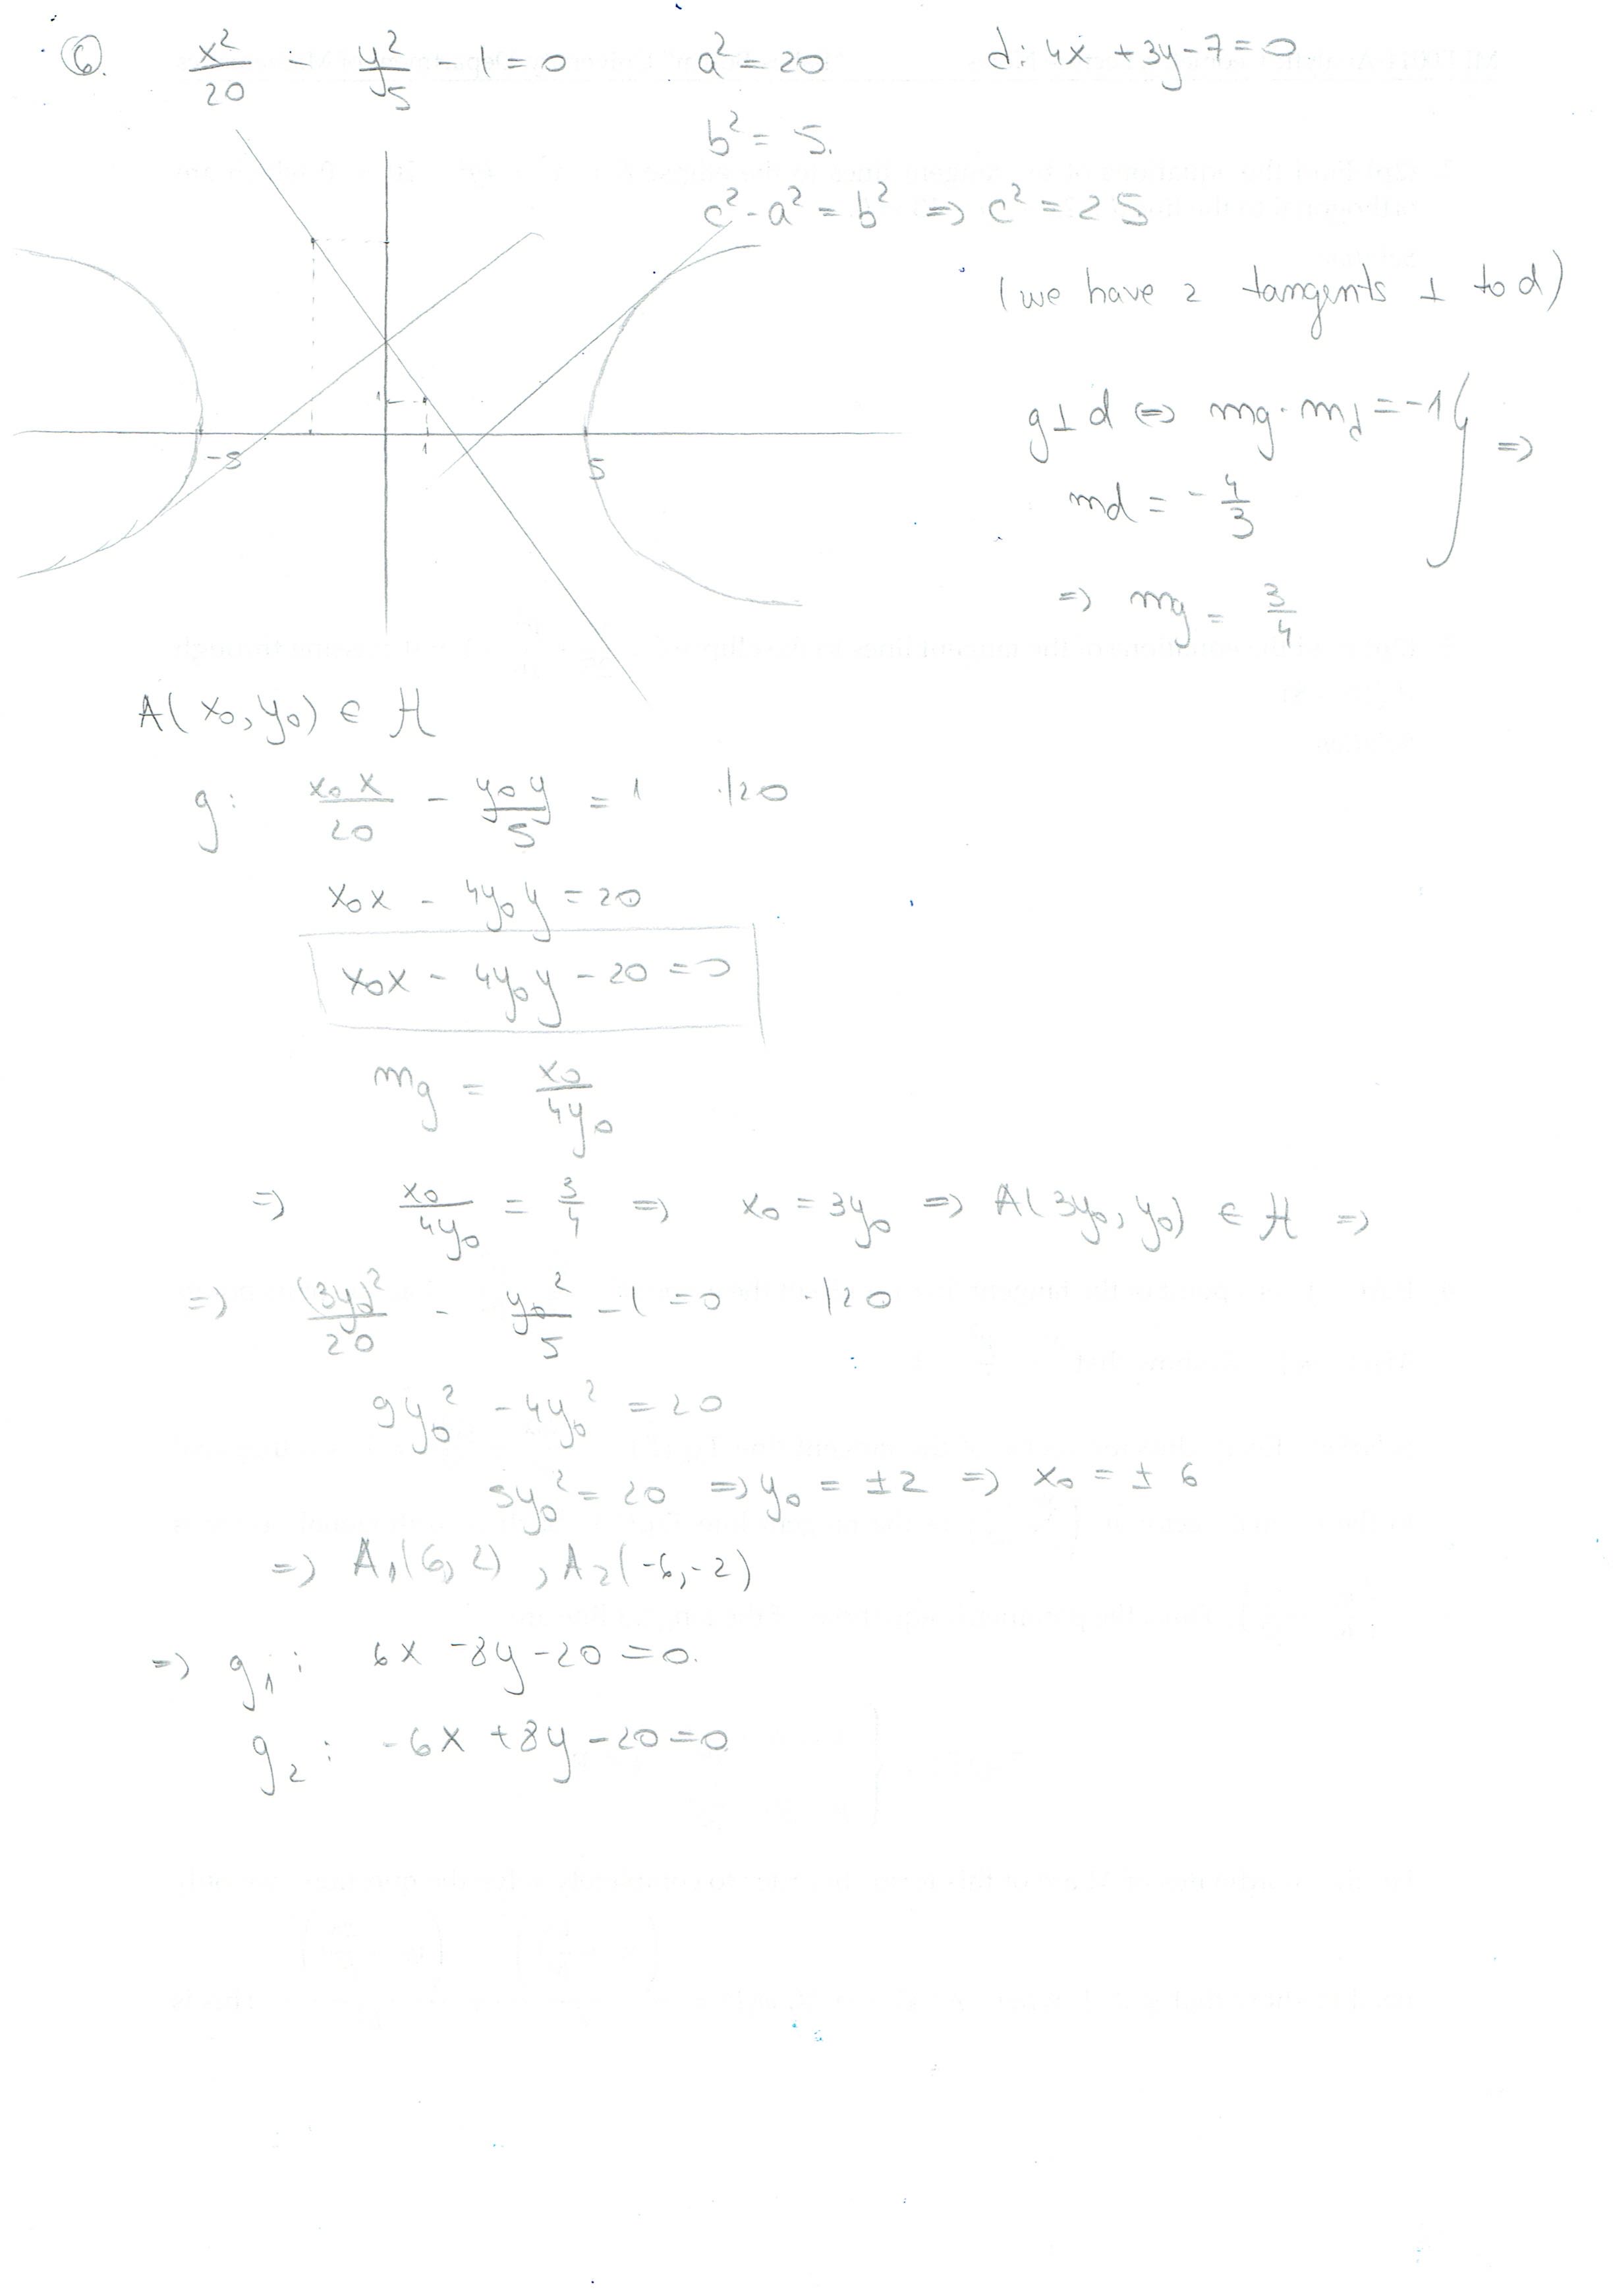 6. x²/20 - y²/5 - 1 = 0   a² = 20   d: 4x + 3y - 7 = 0
b² = 5.
c² - a² = b² => c² = 25
(we have 2 tangents ⊥ to d)
g ⊥ d <=> mg · md = -1 } =>
md = - 4/3
=> mg = 3/4
1
1
-5
5
A(x₀, y₀) ∈ H
g: x₀x/20 - y₀y/5 = 1   ·|20
x₀x - 4y₀y = 20
x₀x - 4y₀y - 20 = 0
mg = x₀/4y₀
=> x₀/4y₀ = 3/4 => x₀ = 3y₀ => A(3y₀, y₀) ∈ H =>
=> (3y₀)²/20 - y₀²/5 - 1 = 0   ·|20
9y₀² - 4y₀² = 20
5y₀² = 20 => y₀ = ±2 => x₀ = ± 6
=> A₁(6, 2) , A₂(-6, -2)
=> g₁: 6x - 8y - 20 = 0.
g₂: -6x + 8y - 20 = 0